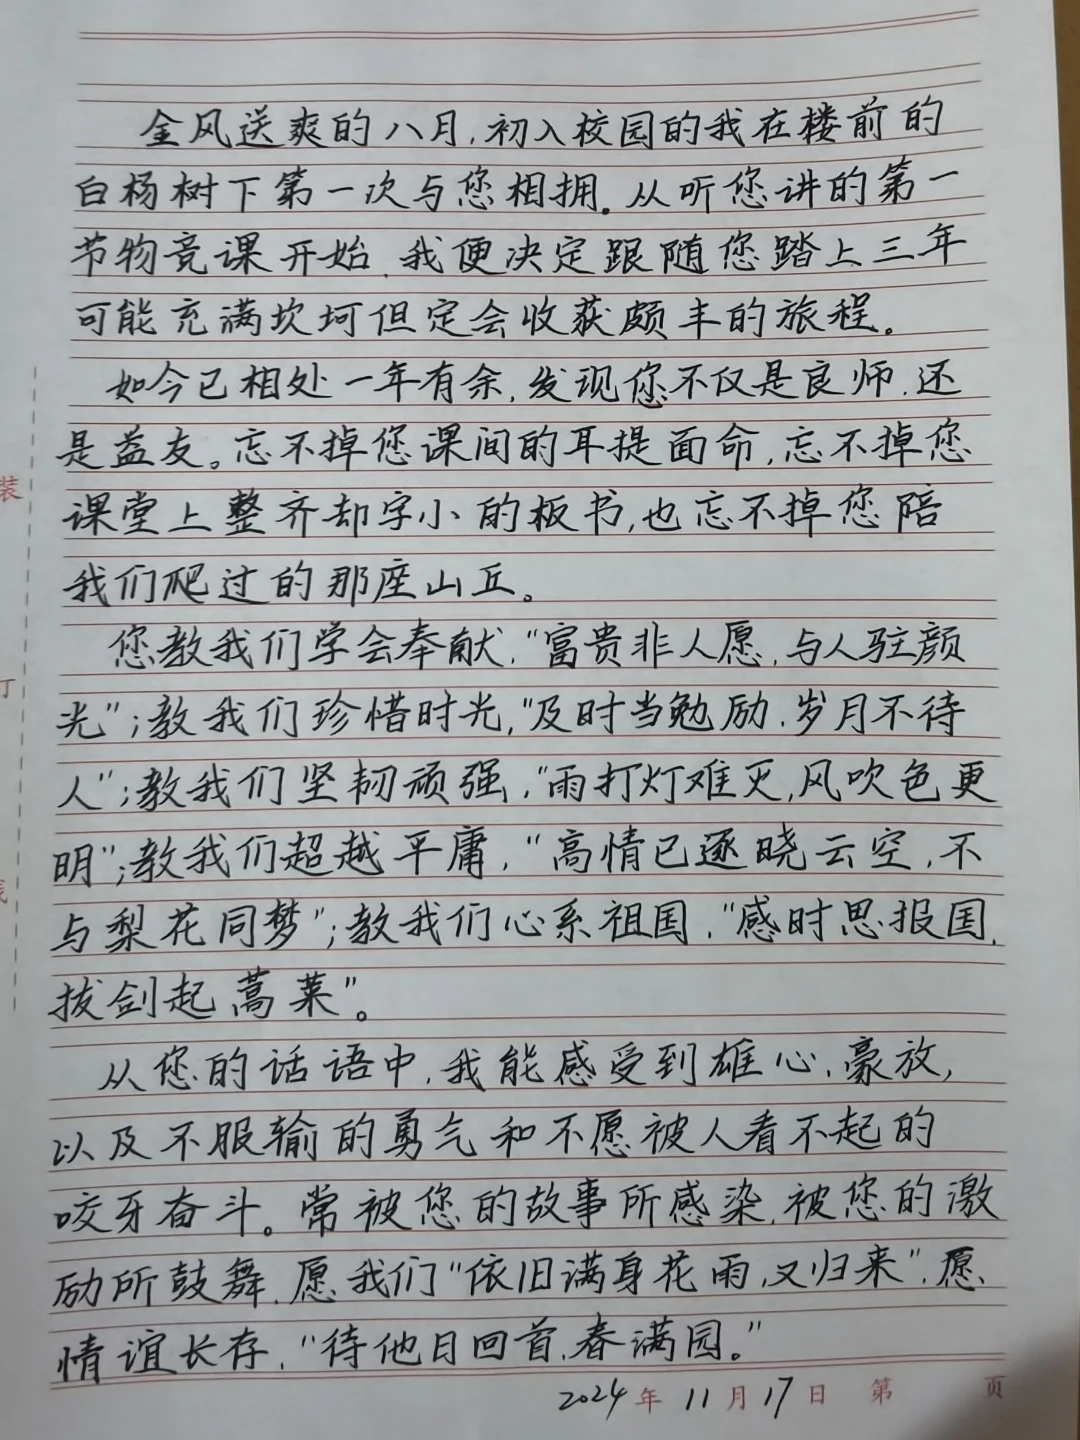 金风送爽的八月,初入校园的我在楼前的
白杨树下第一次与您相拥。从听您讲的第一
节物竞课开始,我便决定跟随您踏上三年
可能充满坎坷但定会收获颇丰的旅程。
如今已相处一年有余,发现您不仅是良师,还
是益友。忘不掉您课间的耳提面命,忘不掉您
课堂上整齐却字小的板书,也忘不掉您陪
我们爬过的那座山丘。
您教我们学会奉献,"富贵非人愿,与人驻颜
光";教我们珍惜时光,"及时当勉励,岁月不待
人";教我们坚韧顽强,"雨打灯难灭,风吹色更
明";教我们超越平庸,"高情已逐晓云空,不
与梨花同梦";教我们心系祖国,"感时思报国,
拔剑起蒿莱"。
从您的话语中,我能感受到雄心、豪放,
以及不服输的勇气和不愿被人看不起的
咬牙奋斗。常被您的故事所感染,被您的激
励所鼓舞,愿我们"依旧满身花雨,又归来",愿
情谊长存,"待他日回首,春满园。"
2024年11月17日 第 页
装
订